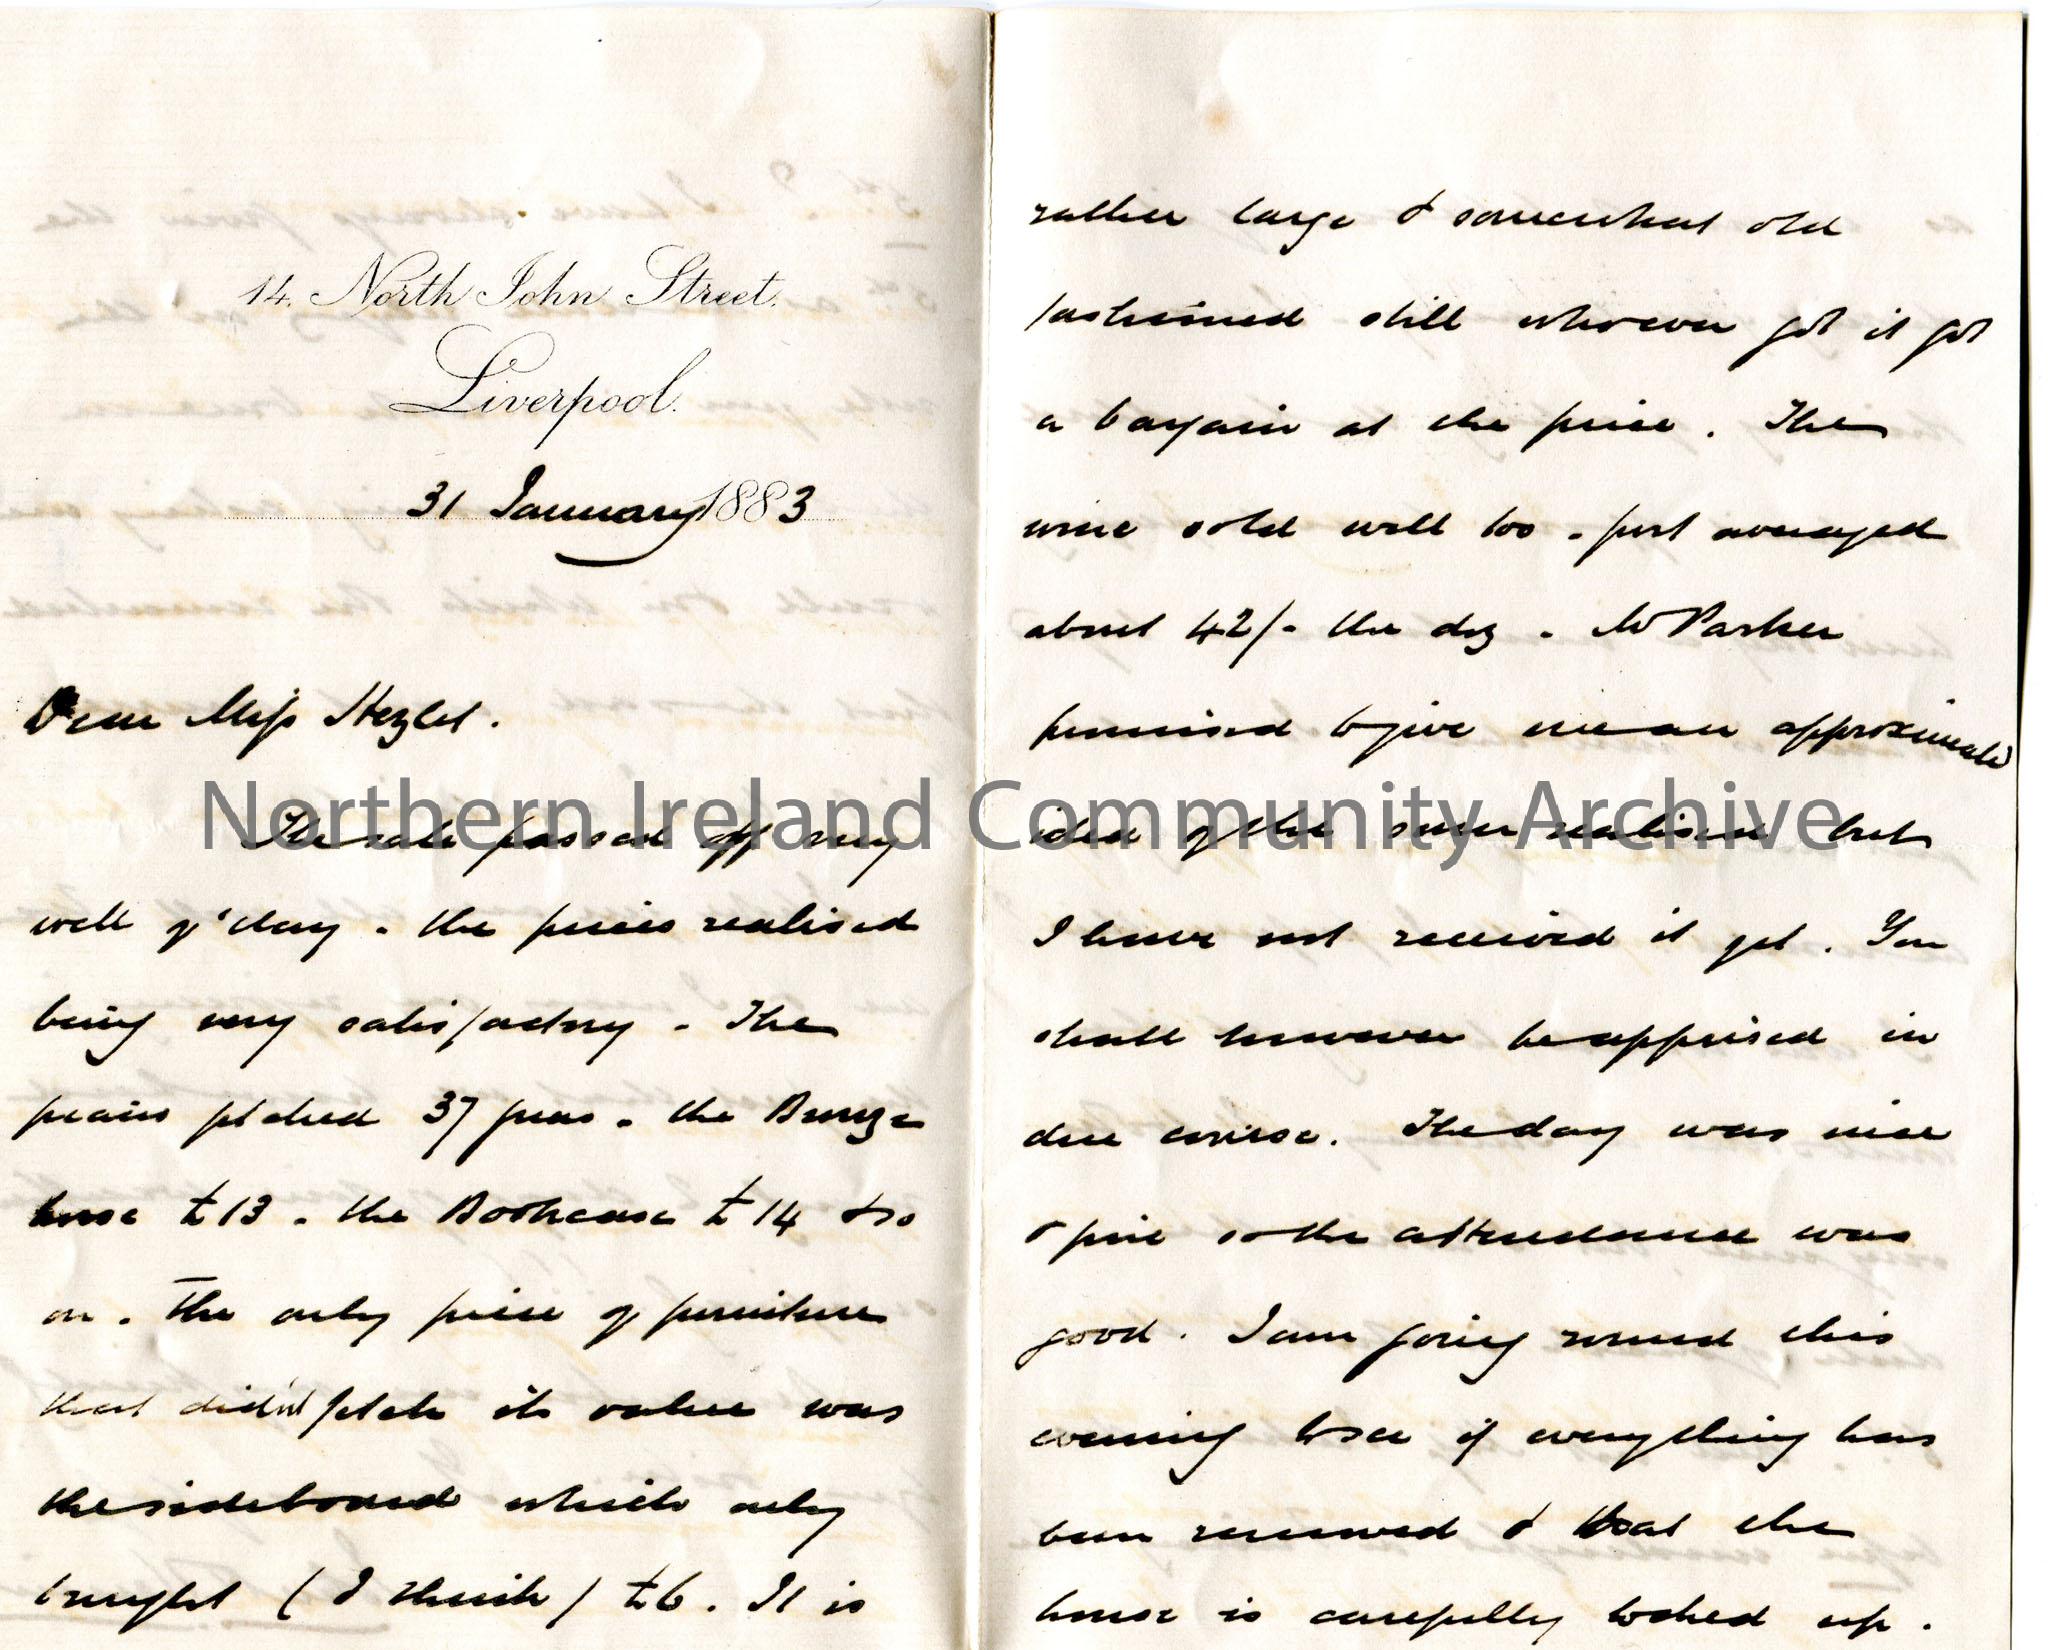 14. North John Street.
Liverpool.
31 January 1883
Dear Miss Hezlet.
The sale passed off very
well y'day. the prices realised
being very satisfactory. The
piano fetched 37 gns. the Bronze
horse £13. the Bookcase £14 & so
on. The only piece of furniture
that didn't fetch its value was
the sideboard which only
brought (I think) £6. It is
rather large & somewhat old
fashioned still whoever got it got
a bargain at the price. The
wine sold well too. just averaged
about 42/- the doz. Mr Parker
promised to give me an approximate
idea of the sum realised but
I have not received it yet. You
shall however be apprised in
due course. The day was nice
& fine so the attendance was
good. I am going round this
evening to see if everything has
been removed & that the
house is carefully locked up.
Northern Ireland Community Archive